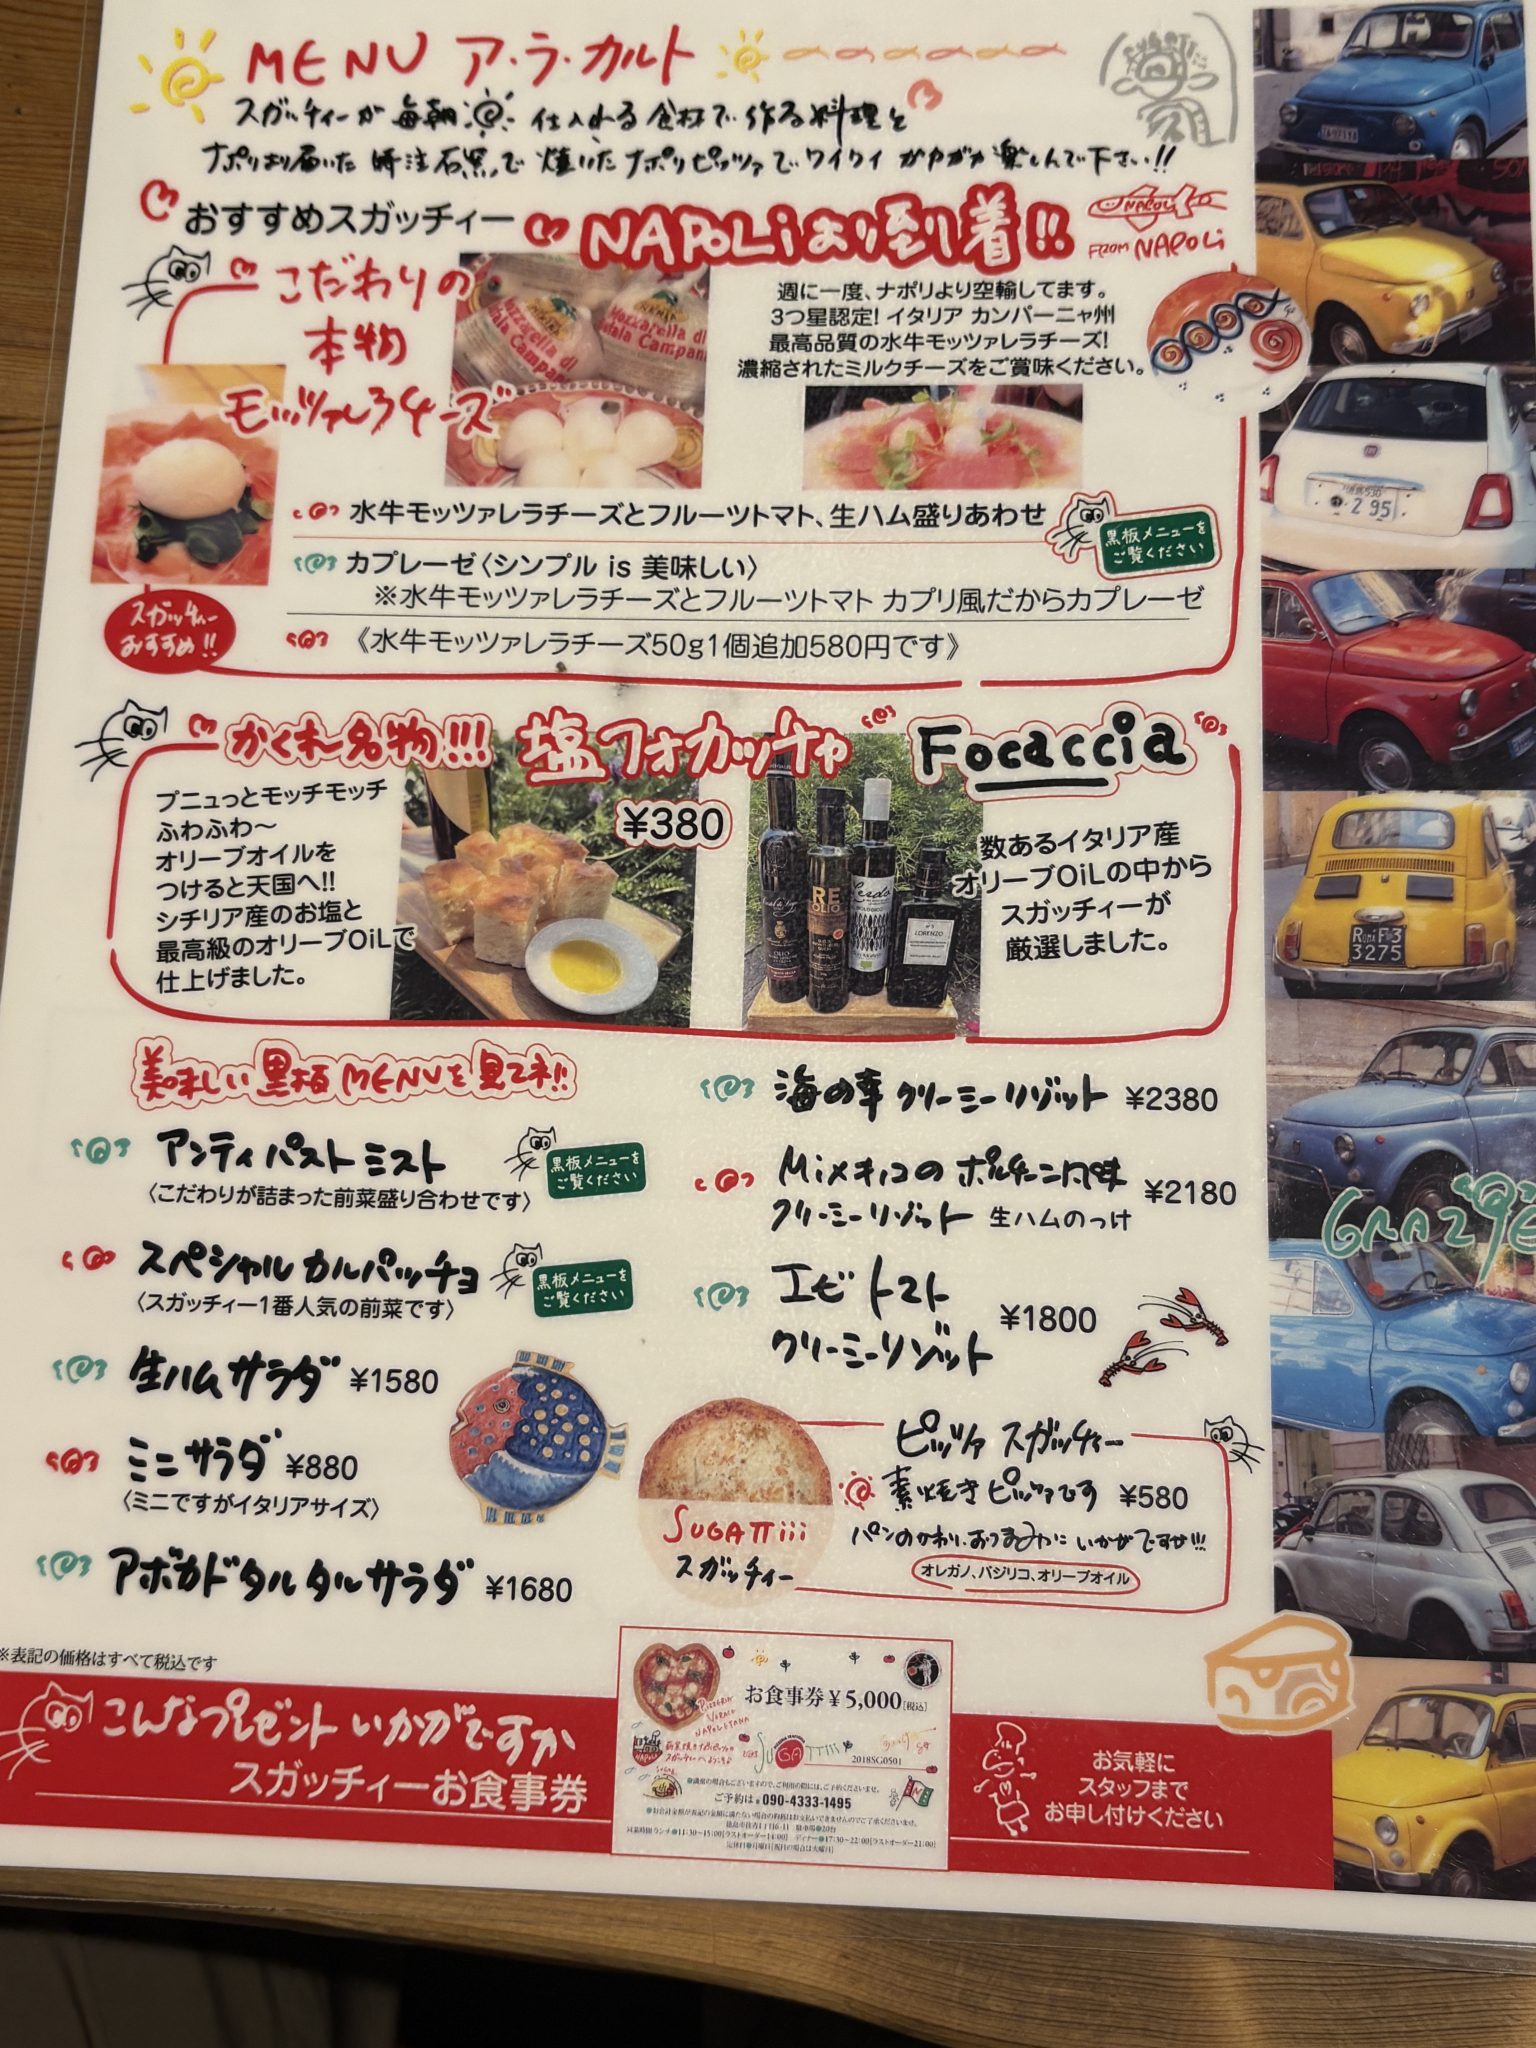 MENU ア・ラ・カルト
スガッチィーが毎朝 仕入れる食材で作る料理と
ナポリより届いた 特注石窯で焼いたナポリピッツァでワイワイ ガヤガヤ楽しんで下さい!!
おすすめスガッチィー
NAPOLiより到着!!
NAPOLi
FROM NAPOLi
こだわりの
本物
モッツァレラチーズ
週に一度、ナポリより空輸してます。
3つ星認定! イタリア カンパーニャ州
最高品質の水牛モッツァレラチーズ!
濃縮されたミルクチーズをご賞味ください。
Mozzarella di
Bufala Campana
水牛モッツァレラチーズとフルーツトマト、生ハム盛りあわせ
黒板メニューを
ご覧ください
カプレーゼ〈シンプル is 美味しい〉
※水牛モッツァレラチーズとフルーツトマト カプリ風だからカプレーゼ
スガッチィー
おすすめ!!
《水牛モッツァレラチーズ50g1個追加580円です》
かくれ名物!!! 塩フォカッチャ
Focaccia
¥380
プニュっとモッチモッチ
ふわふわ〜
オリーブオイルを
つけると天国へ!!
シチリア産のお塩と
最高級のオリーブOiLで
仕上げました。
数あるイタリア産
オリーブOiLの中から
スガッチィーが
厳選しました。
RE
OLIO
LORENZO
美味しい黒板MENUを見てネ!!
アンティパストミスト
〈こだわりが詰まった前菜盛り合わせです〉
黒板メニューを
ご覧ください
スペシャルカルパッチョ
〈スガッチィー1番人気の前菜です〉
黒板メニューを
ご覧ください
生ハムサラダ ¥1580
ミニサラダ ¥880
〈ミニですがイタリアサイズ〉
アボカドタルタルサラダ ¥1680
海の幸クリーミーリゾット ¥2380
Mixキノコのポルチーニ風味
クリーミーリゾット 生ハムのっけ
¥2180
エビトマト
クリーミーリゾット
¥1800
ピッツァ スガッチィー
素焼きピッツァです ¥580
パンのかわり、おつまみにいかがですか!!!
オレガノ、バジリコ、オリーブオイル
SUGATTiii
スガッチィー
※表記の価格はすべて税込です
こんなプレゼントいかがですか
スガッチィーお食事券
お食事券¥5,000[税込]
PIZZERIA
VERACE
NAPOLETANA
NAPOLI
SUGATTiii
2018SG0501
ご予約は 090-4333-1495
営業時間 ランチ●11:30〜15:00[ラストオーダー14:00] ディナー●17:30〜22:00[ラストオーダー21:00]
定休日●月曜日[祝日の場合は火曜日]
お気軽に
スタッフまで
お申し付けください
2 95
Roma F3
3275
GRAZIE